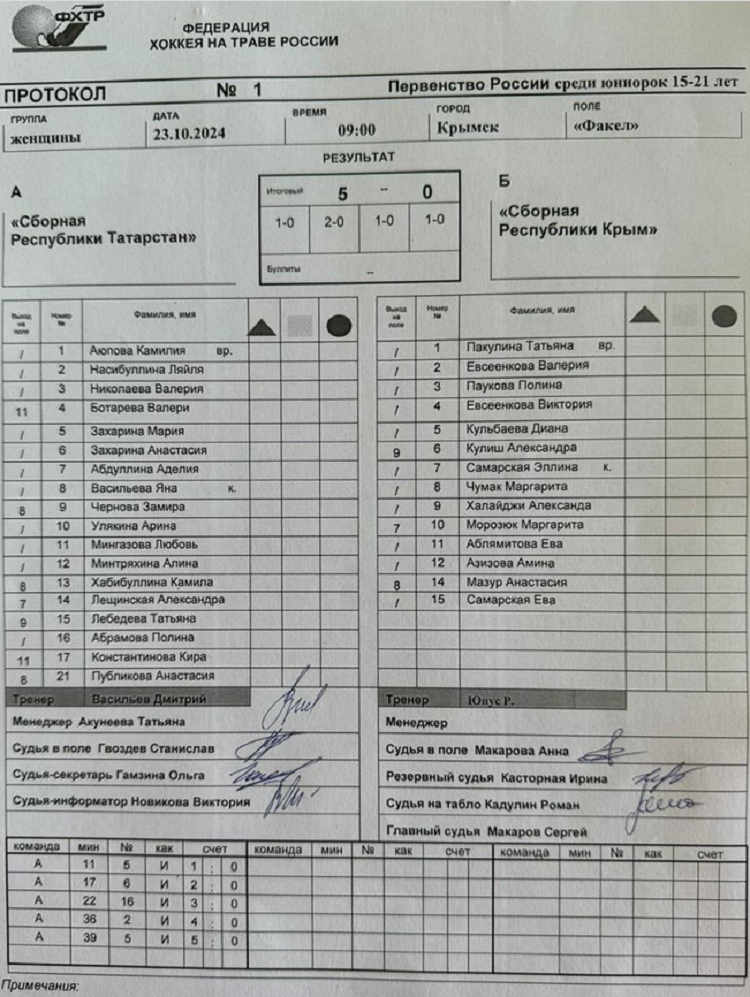 ФХТР
ФЕДЕРАЦИЯ
ХОККЕЯ НА ТРАВЕ РОССИИ
ПРОТОКОЛ № 1 Первенство России среди юниорок 15-21 лет
ГРУППА ДАТА ВРЕМЯ ГОРОД ПОЛЕ
женщины 23.10.2024 09:00 Крымск «Факел»
РЕЗУЛЬТАТ
А Итоговый 5 – 0 Б
«Сборная
Республики Татарстан»
1-0 2-0 1-0 1-0
Буллиты –
«Сборная
Республики Крым»
Выход на поле Номер № Фамилия, имя
/ 1 Аюпова Камилия вр.
/ 2 Насибуллина Ляйля
/ 3 Николаева Валерия
11 4 Ботарева Валери
/ 5 Захарина Мария
/ 6 Захарина Анастасия
/ 7 Абдуллина Аделия
/ 8 Васильева Яна к.
8 9 Чернова Замира
/ 10 Улякина Арина
/ 11 Мингазова Любовь
/ 12 Минтряхина Алина
8 13 Хабибуллина Камила
7 14 Лещинская Александра
9 15 Лебедева Татьяна
/ 16 Абрамова Полина
11 17 Константинова Кира
8 21 Публикова Анастасия
Тренер Васильев Дмитрий
Менеджер Акунеева Татьяна
Судья в поле Гвоздев Станислав
Судья-секретарь Гамзина Ольга
Судья-информатор Новикова Виктория
Выход на поле Номер № Фамилия, имя
/ 1 Пакулина Татьяна вр.
/ 2 Евсеенкова Валерия
/ 3 Паукова Полина
/ 4 Евсеенкова Виктория
/ 5 Кульбаева Диана
9 6 Кулиш Александра
/ 7 Самарская Эллина к.
/ 8 Чумак Маргарита
/ 9 Халайджи Александа
7 10 Морозюк Маргарита
/ 11 Аблямитова Ева
/ 12 Азизова Амина
8 14 Мазур Анастасия
/ 15 Самарская Ева
Тренер Юнус Р.
Менеджер
Судья в поле Макарова Анна
Резервный судья Касторная Ирина
Судья на табло Кадулин Роман
Главный судья Макаров Сергей
команда мин № как счет команда мин № как счет команда мин № как счет
А 11 5 И 1 : 0
А 17 6 И 2 : 0
А 22 16 И 3 : 0
А 36 2 И 4 : 0
А 39 5 И 5 : 0
Примечания: